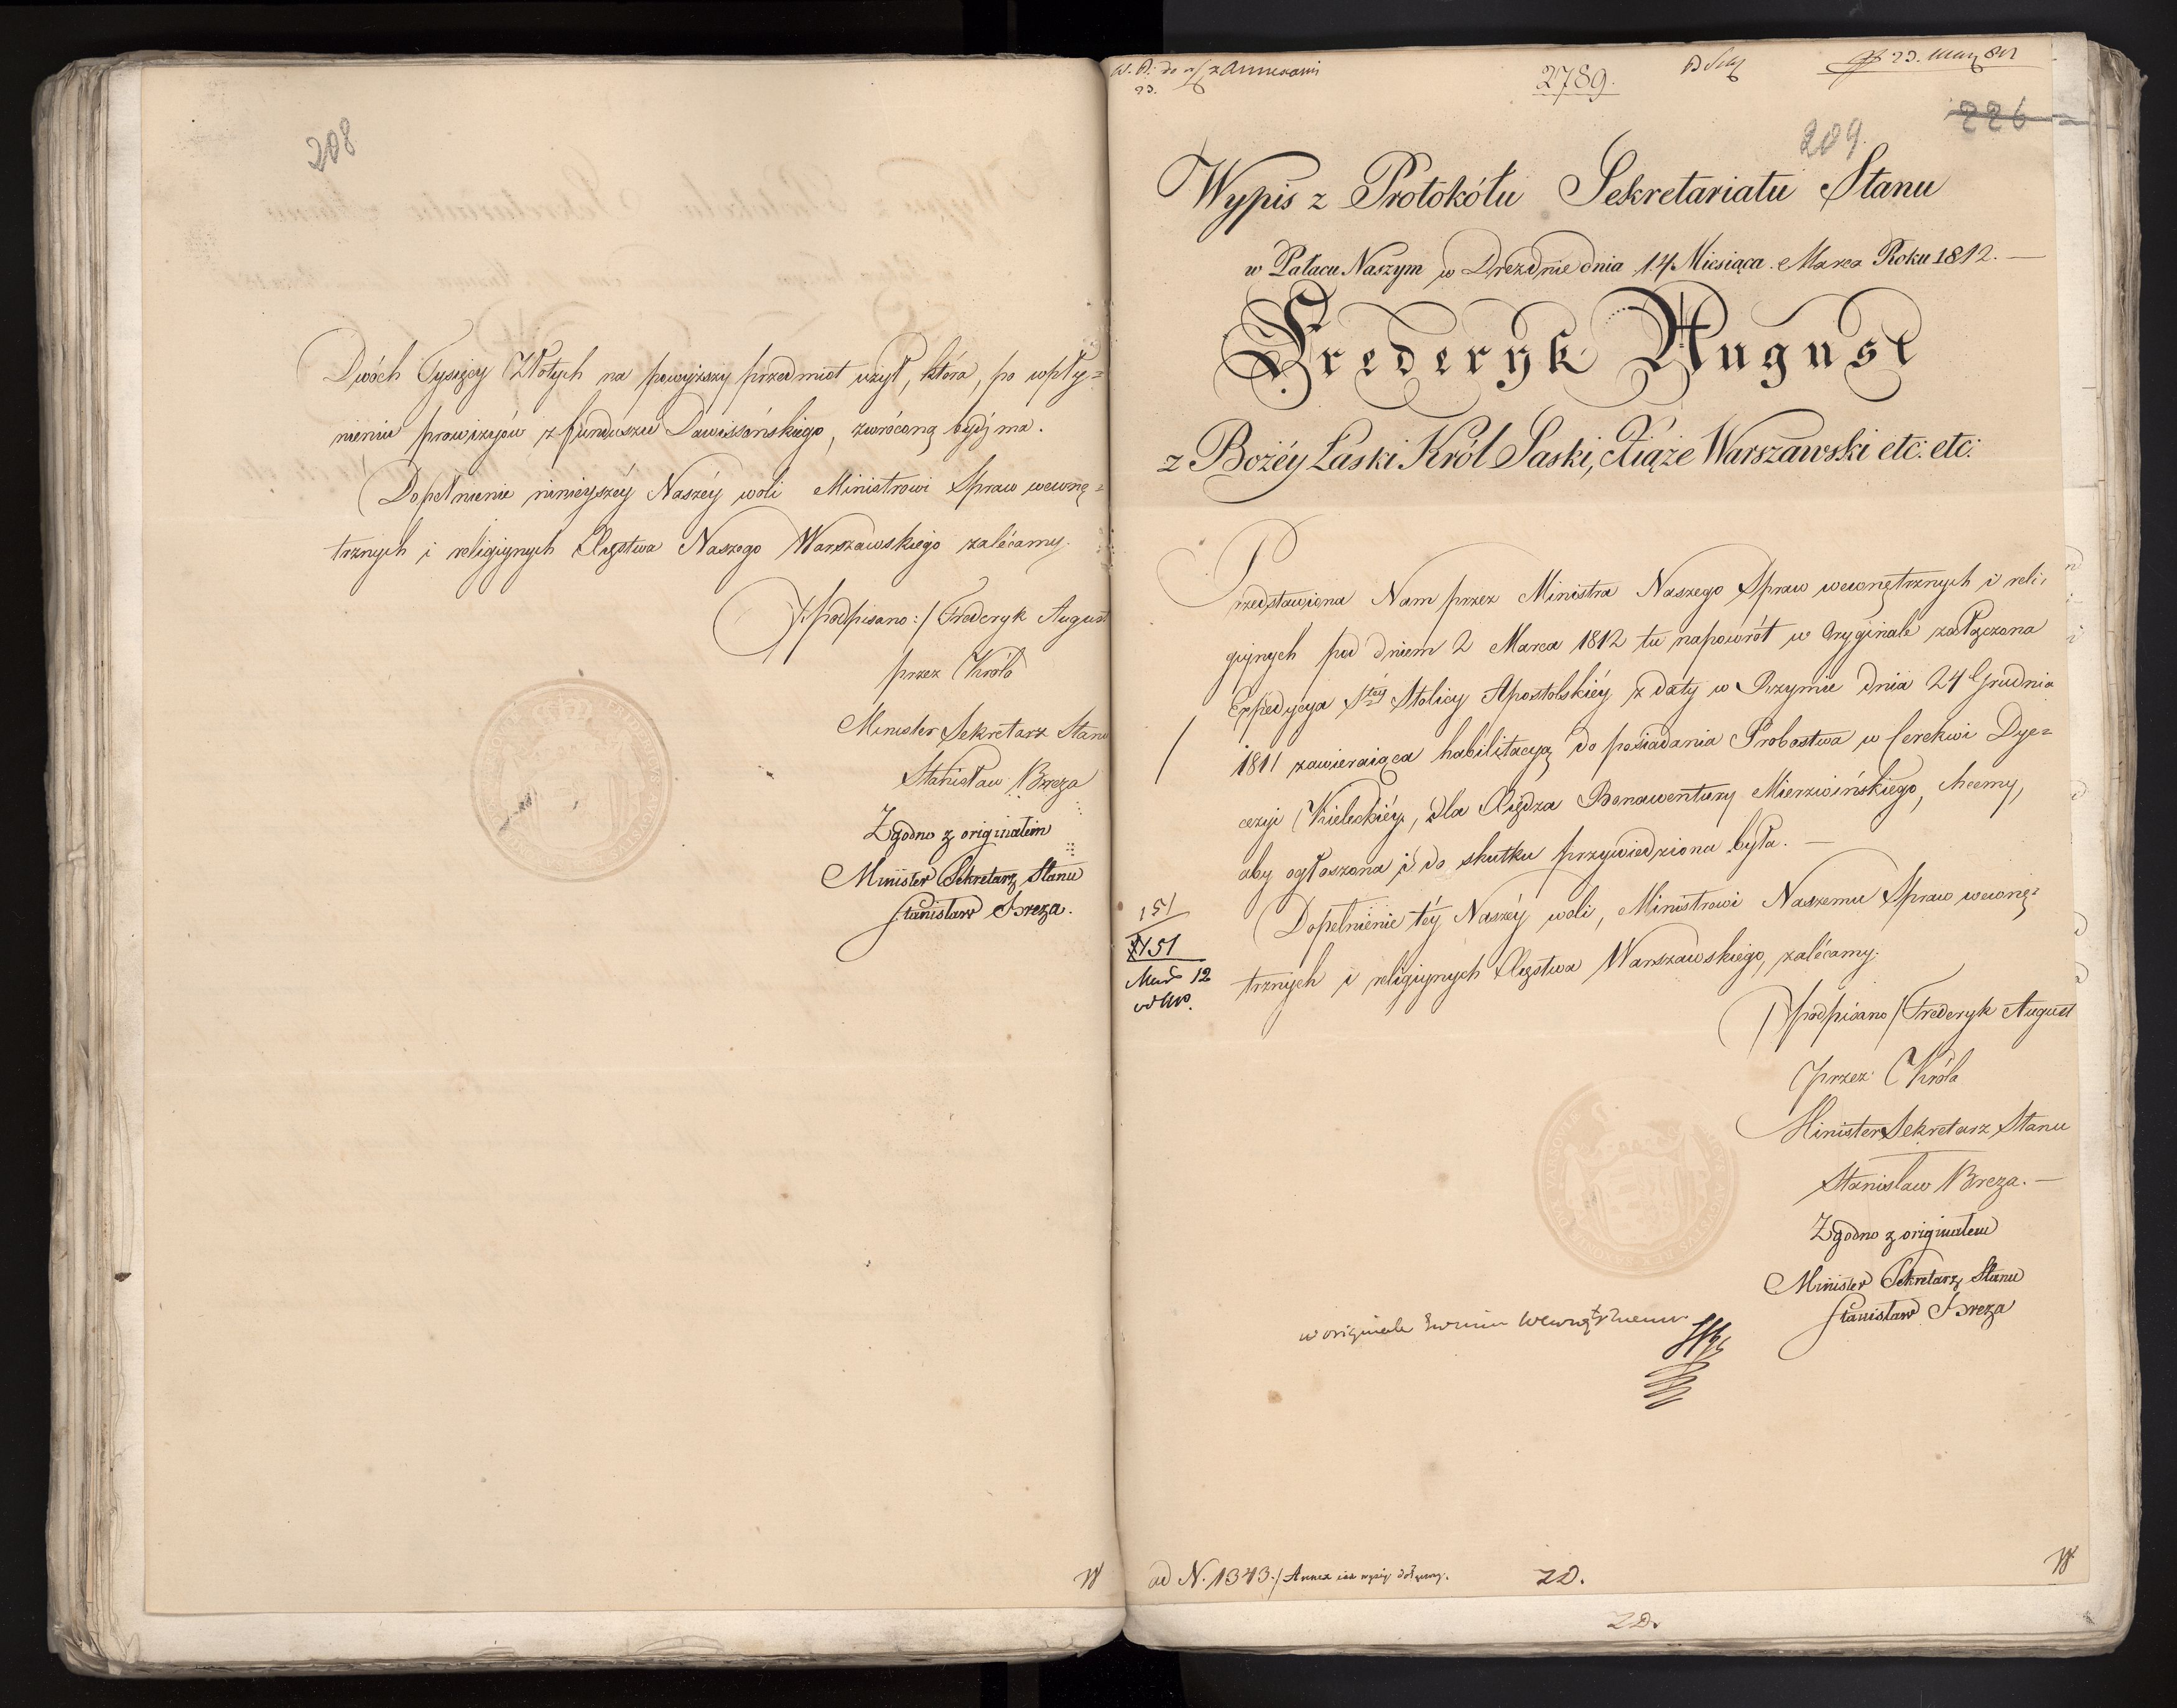 208
Dwóch Tysięcy Złotych na powyższy przedmiot użył, która, po wpły=
nieniu prowizyów z funduszu Dawissońskiego, zwróconą bydź ma.
Dopełnienie ninieyszéy Naszéy woli Ministrowi Spraw wewnę=
trznych i religiynych Xięstwa Naszego Warszawskiego zalécamy.
/:podpisano:/ Frederyk August
przez Króla
Minister Sekretarz Stanu
Stanisław Breza
Zgodno z originałem
Minister Sekretarz Stanu
Stanisław Breza.
W
23.
2789.
23.
226
209.
Wypis z Protokółu Sekretariatu Stanu
w Pałacu Naszym w Dreźdnie dnia 14 Miesiąca Marca Roku 1812.
Frederyk August
z Bożéy Łaski Król Saski, Xiąże Warszawski etc: etc:
Przedstawiona Nam przez Ministra Naszego Spraw wewnętrznych i reli,
giynych pod dniem 2 Marca 1812 tu napowrót w Oryginale załączona
Expedycya Stéy Stolicy Apostolskiéy z daty w Rzymie dnia 24 Grudnia
1811 zawieraiąca habilitacyą do posiadania Probostwa w Cerekwi Dye=
cezyi Kieleckiéy, dla Xiędza Bonawentury Mierzwińskiego, chcemy,
aby ogłoszona i do skutku przywiedziona była.
Dopełnienie téy Naszéy woli, Ministrowi Naszemu Spraw wewnę=
trznych i religiynych Xięstwa Warszawskiego, zalécamy.
151
151
12
/podpisano/ Frederyk August
przez Króla
Minister Sekretarz Stanu
Stanisław Breza.
Zgodno z originałem
Minister Sekretarz Stanu
Stanisław Breza
w originale
ad N. 1343./ Annex
20.
W
20.